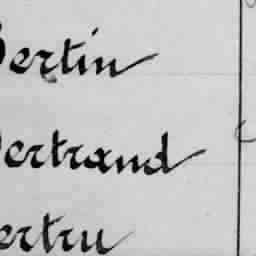 Bertin
Bertrand
Bertru